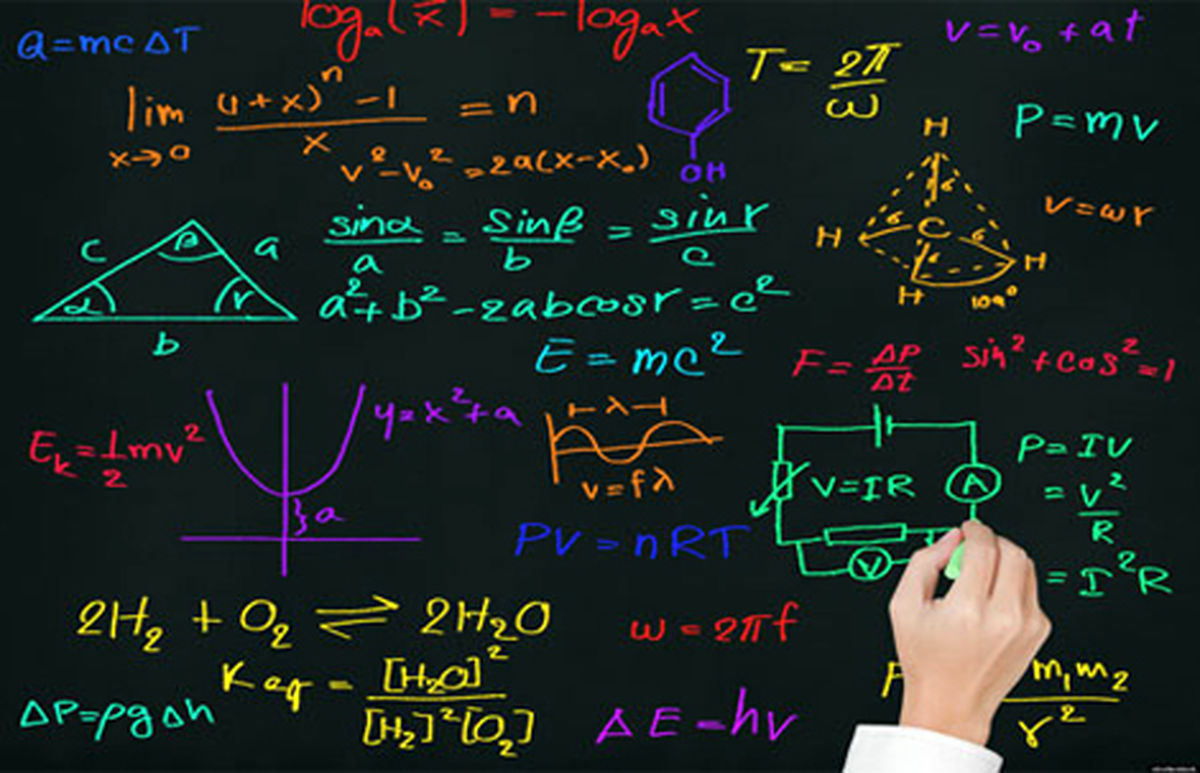 log_a(1/x) = -log_a x
Q=mcΔT
v=v₀+at
lim x→0 ((1+x)ⁿ-1)/x = n
T= 2π/ω
P=mv
OH
v²-v₀²=2a(x-x₀)
H
H C H
H
6 6 6 6
109°
v=ωr
c β a
α r
b
sinα/a = sinβ/b = sin r/c
a²+b²-2abcosr=c²
E=mc²
F= ΔP/Δt
sin²+cos²=1
E_k=1/2 mv²
y=x²+a
a
λ
v=fλ
V=IR
A
V
P=IV
= V²/R
= I²R
PV=nRT
2H₂ + O₂ ⇌ 2H₂O
ω=2πf
Keq = [H₂O]²/[H₂]²[O₂]
ΔP=ρgΔh
ΔE=hν
F
m₁m₂/r²